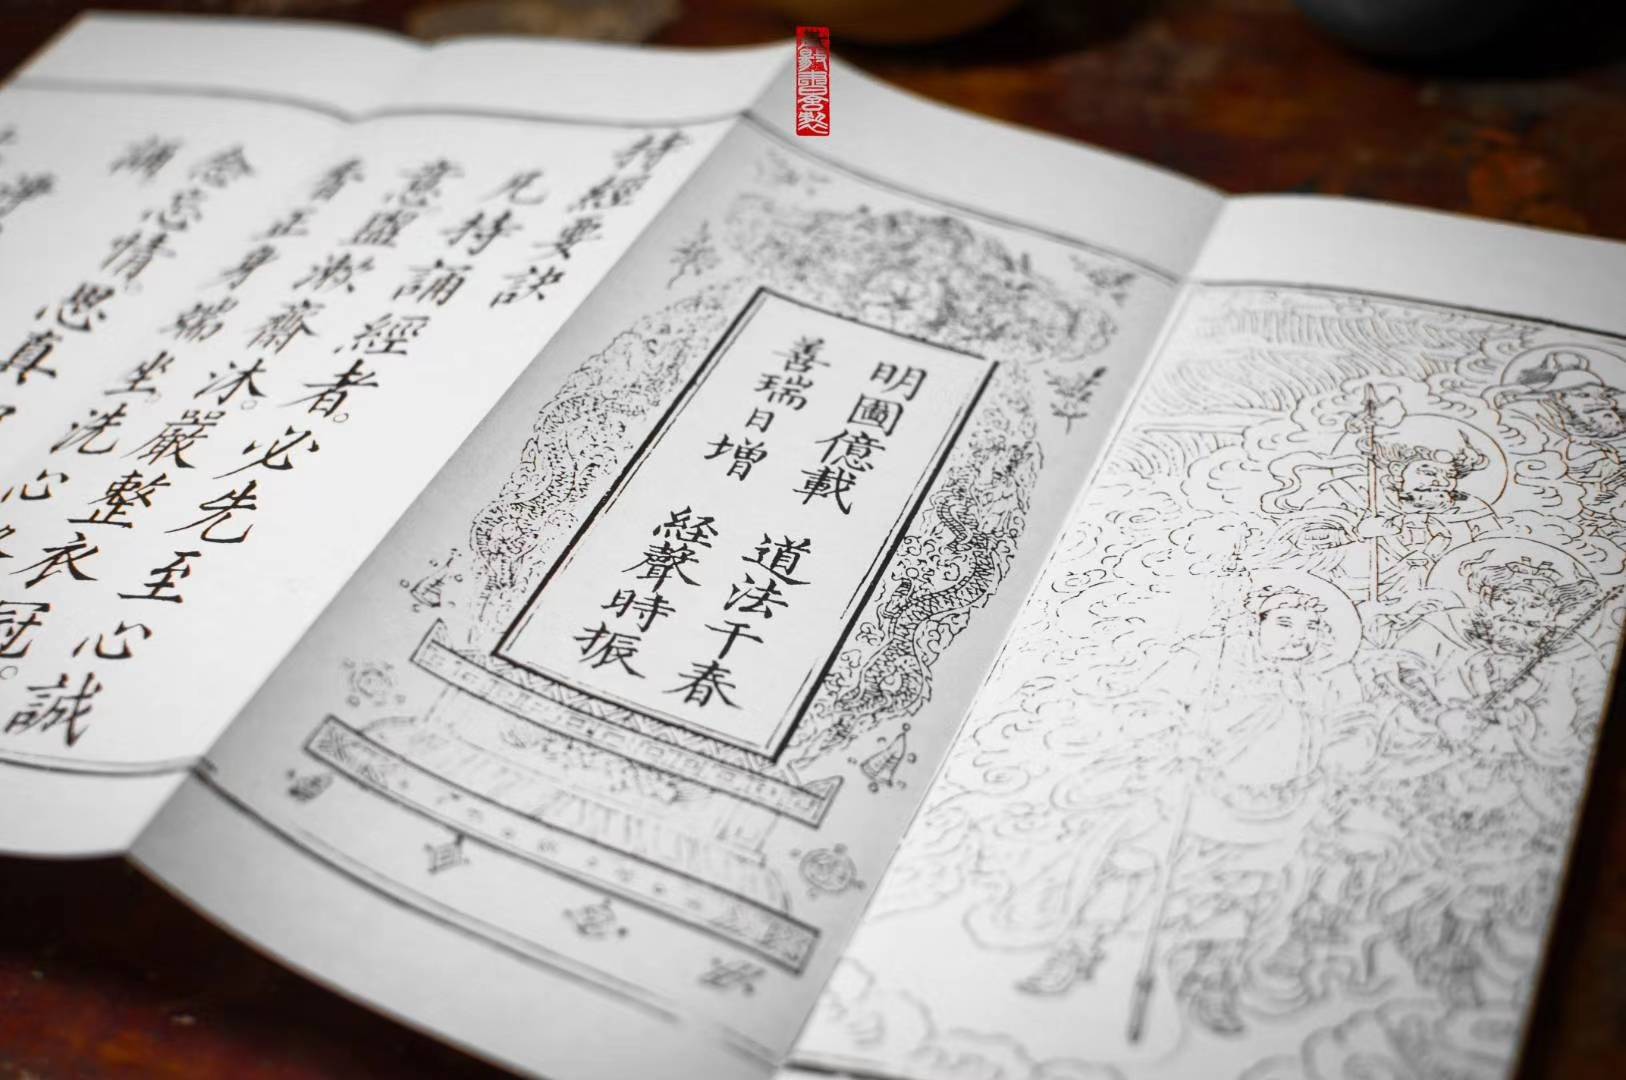 明圖億載 道法千春
善瑞日增 経聲時振
持經要訣
凡持誦經者。必先至心誠
意盥漱齋沐。嚴整衣冠。
香正身端坐。洗心
念忘情。思真